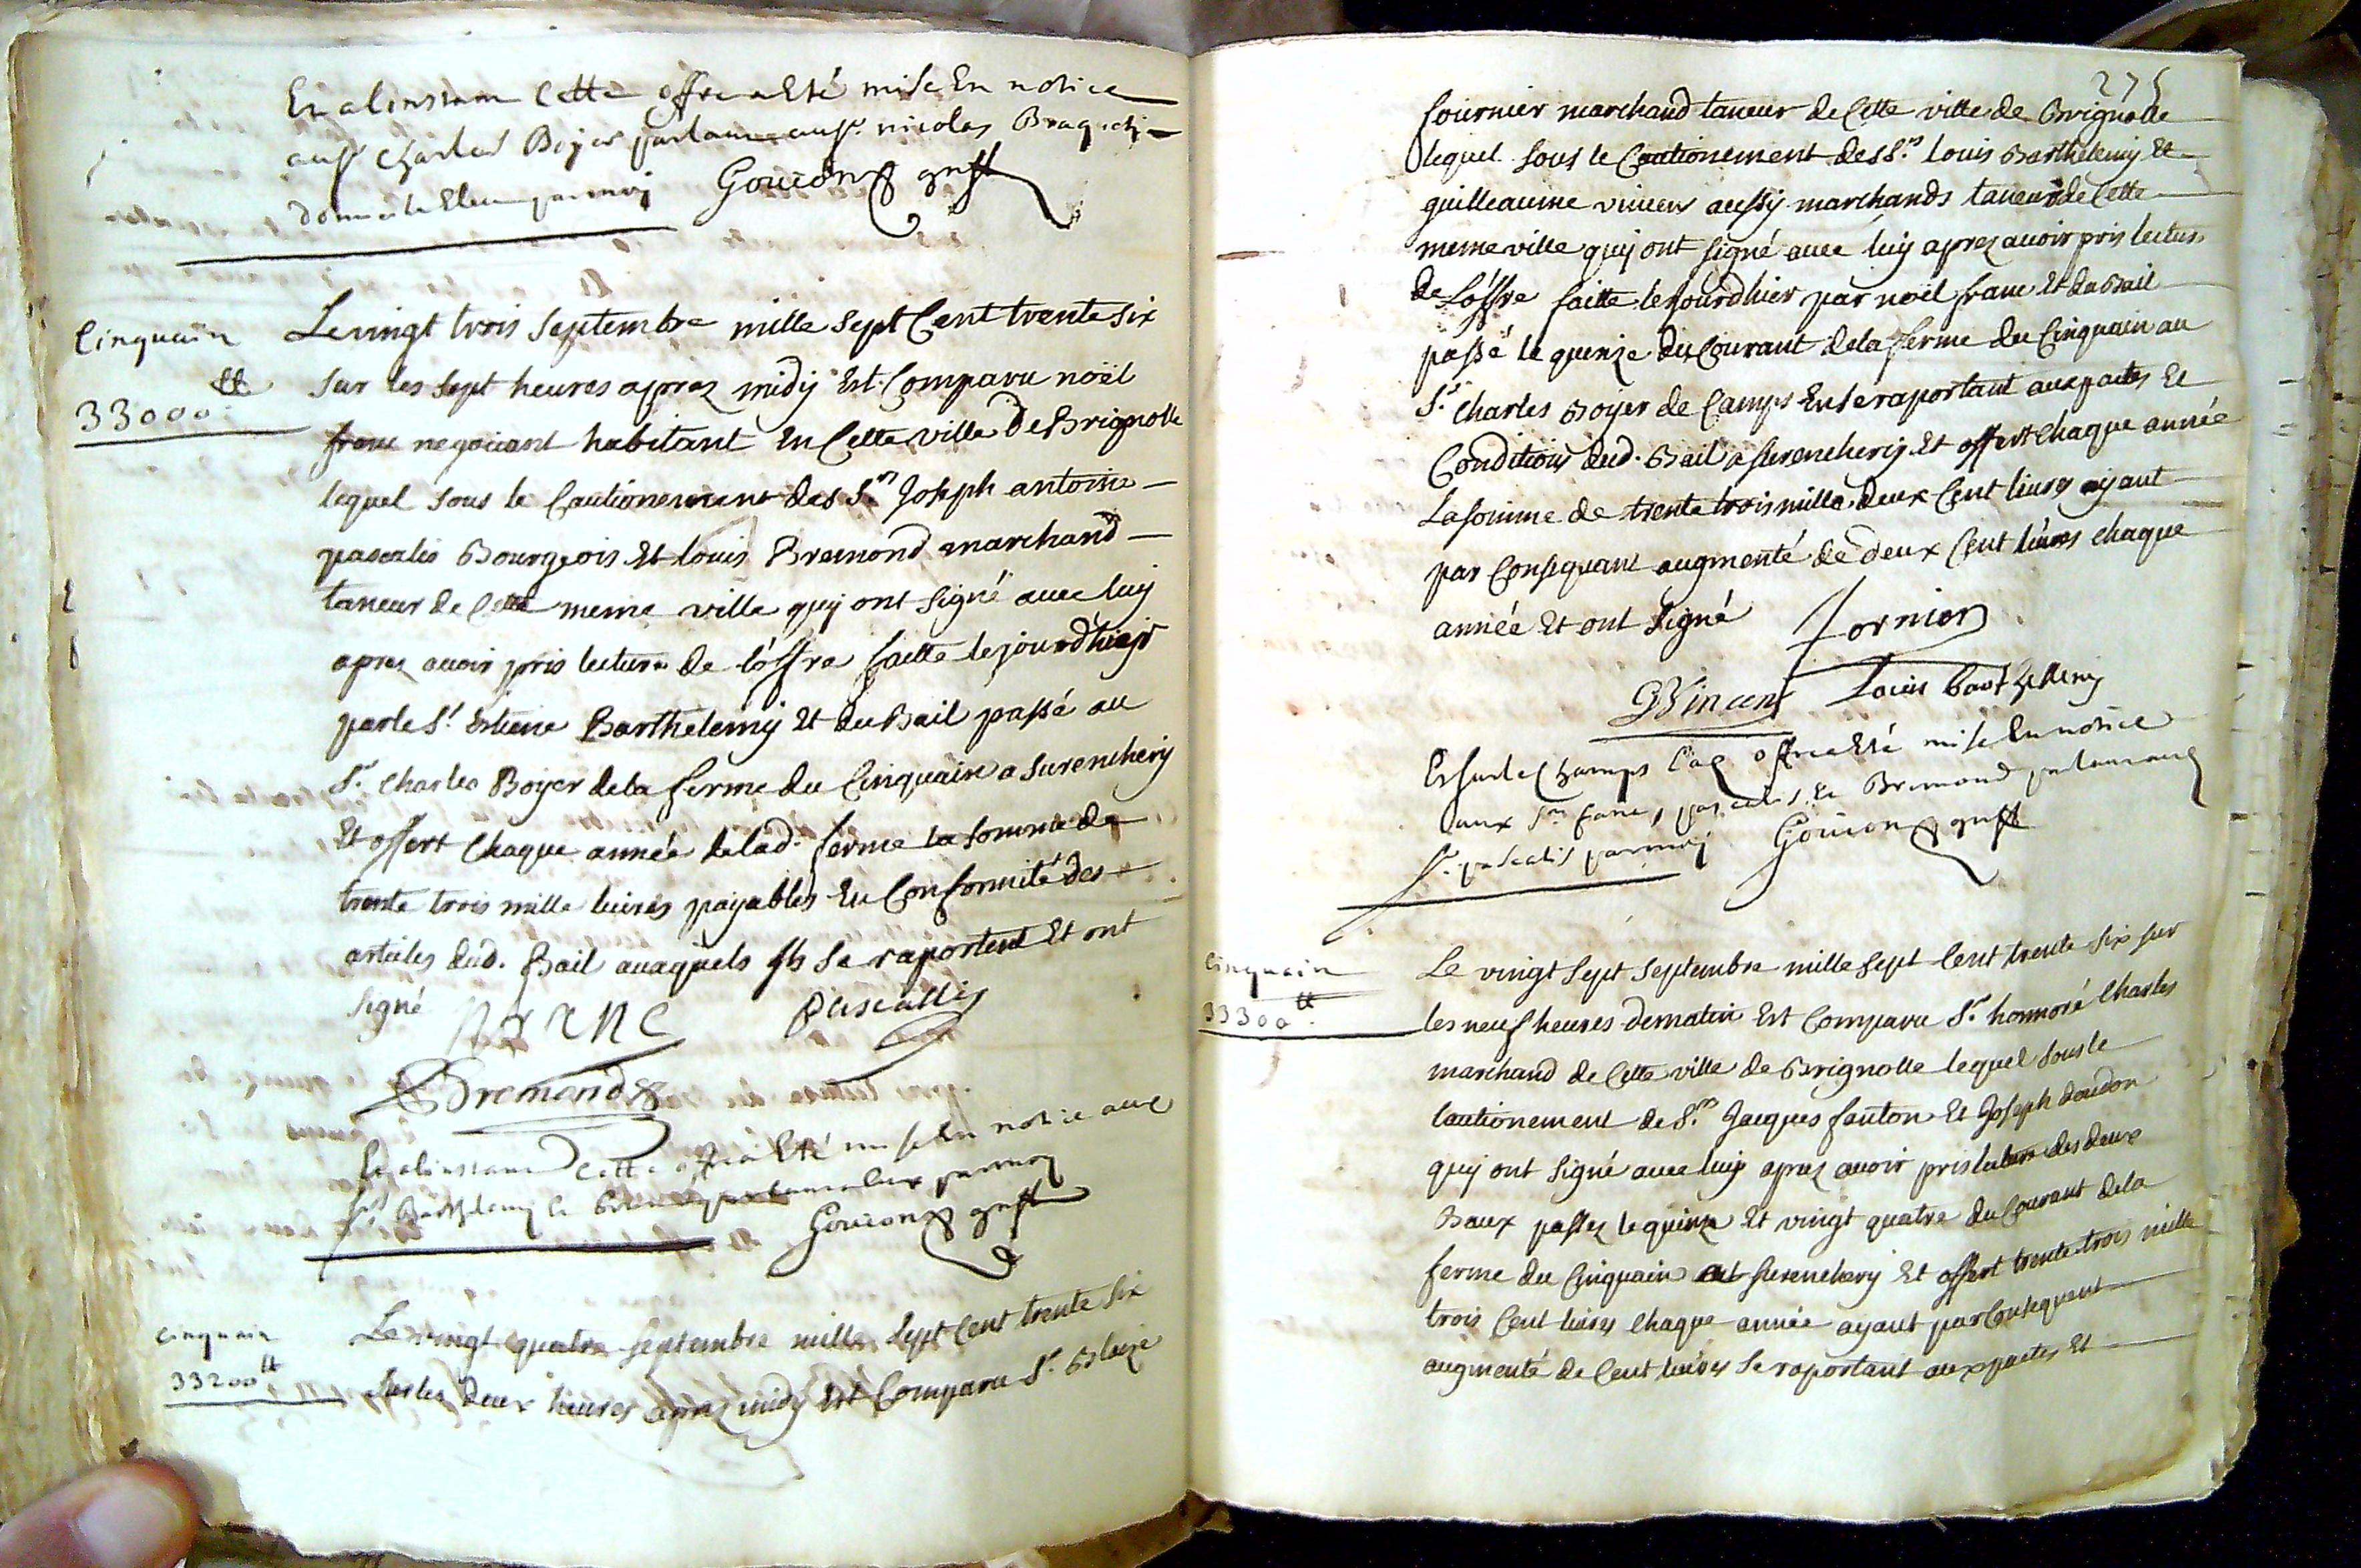 Et a linstam Cette offre a Eté mise En notice
au sr Charles Boyer parlam au sr. nicolas Braquety
domicile Eleu par moy Gouion gref
Cinquain
33000 ₶
Le vingt trois septembre mille sept Cent trente six
sur les sept heures aprez midy Est Comparu noël
franc negociant habitant En Cette ville de Brignolle
lequel sous le Cautionement des Srs Joseph antoine
pascalis Bourgeois Et louis Bremond marchand
taneur de Cette meme ville quy ont signé avec luy
aprez avoir pris lecture de l'offre faitte le jourdhier
par le Sr. Estiene Barthelemy Et du Bail passé au
Sr. Charles Boyer de la ferme du Cinquain a surenchery
Et offert Chaque année de lad. ferme la somme de
trente trois mille livres payables En Conformité des
articles dud. Bail auxquels ils se raportent Et ont
signé N franc Pascallis
Bremond
Et a linstam Cette offre a Eté mise En notice aux
Srs Barthelemy Et parlam a Eux par moy
Gouion gref
Cinquain
33200 ₶
Le vingt quatre septembre mille sept Cent trente six
sur les deux heures aprez midy Est Comparu Sr. Blaize
275
fournier marchand taneur de Cette ville de Brignolle
lequel sous le Cautionement des Srs. louis Barthelemy Et
guilleaume vincens aussy marchands taneurs de Cette
meme ville quy ont signé avec luy aprez avoir pris lecture
de l'offre faitte le jourdhier par noël franc Et du Bail
passé le quinze du Courant de la ferme du Cinquain au
Sr. Charles Boyer de Camps En se raportant aux pactes Et
Conditions dud. Bail a surenchery Et offert Chaque année
La somme de trente trois mille deux Cent livres ayant
par Consequant augmenté de deux Cent livres chaque
année Et ont signé fornier
G Vincent Louis barthellemy
Et sur le Champs laq offre a Eté mise En notice
aux Srs franc, pascalis, Et Bremond parlam aud
Sr. pascalis par moy Gouion gref
Cinquain
33300 ₶
Le vingt sept septembre mille sept Cent trente six sur
les neuf heures de matin Est Comparu Sr. honnoré Charles
marchand de Cette ville de Brignolle lequel sous le
Cautionement de Srs. Jacques fauton Et Joseph doudon
quy ont signé avec luy aprez avoir pris lecture des deux
Baux passez le quinze Et vingt quatre du Courant de la
ferme du Cinquain surenchery Et offert trente trois mille
trois Cent livres Chaque année ayant par Consequent
augmenté de Cent livres se raportant aux pactes Et